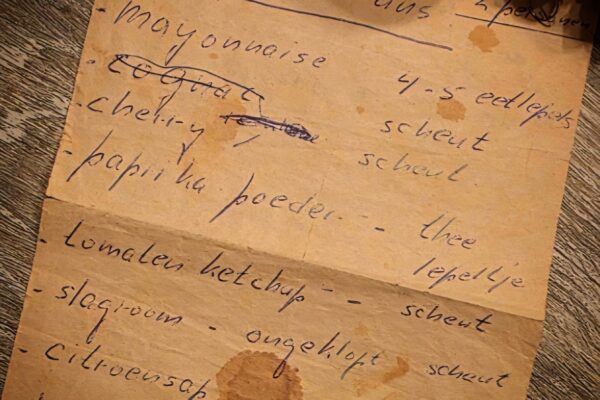 2 personen
- mayonnaise 4-5 eetlepels
- cognac scheut
- cherry scheut
- paprika poeder - thee lepeltje
- tomaten ketchup - scheut
- slagroom - ongeklopt scheut
- citroensap